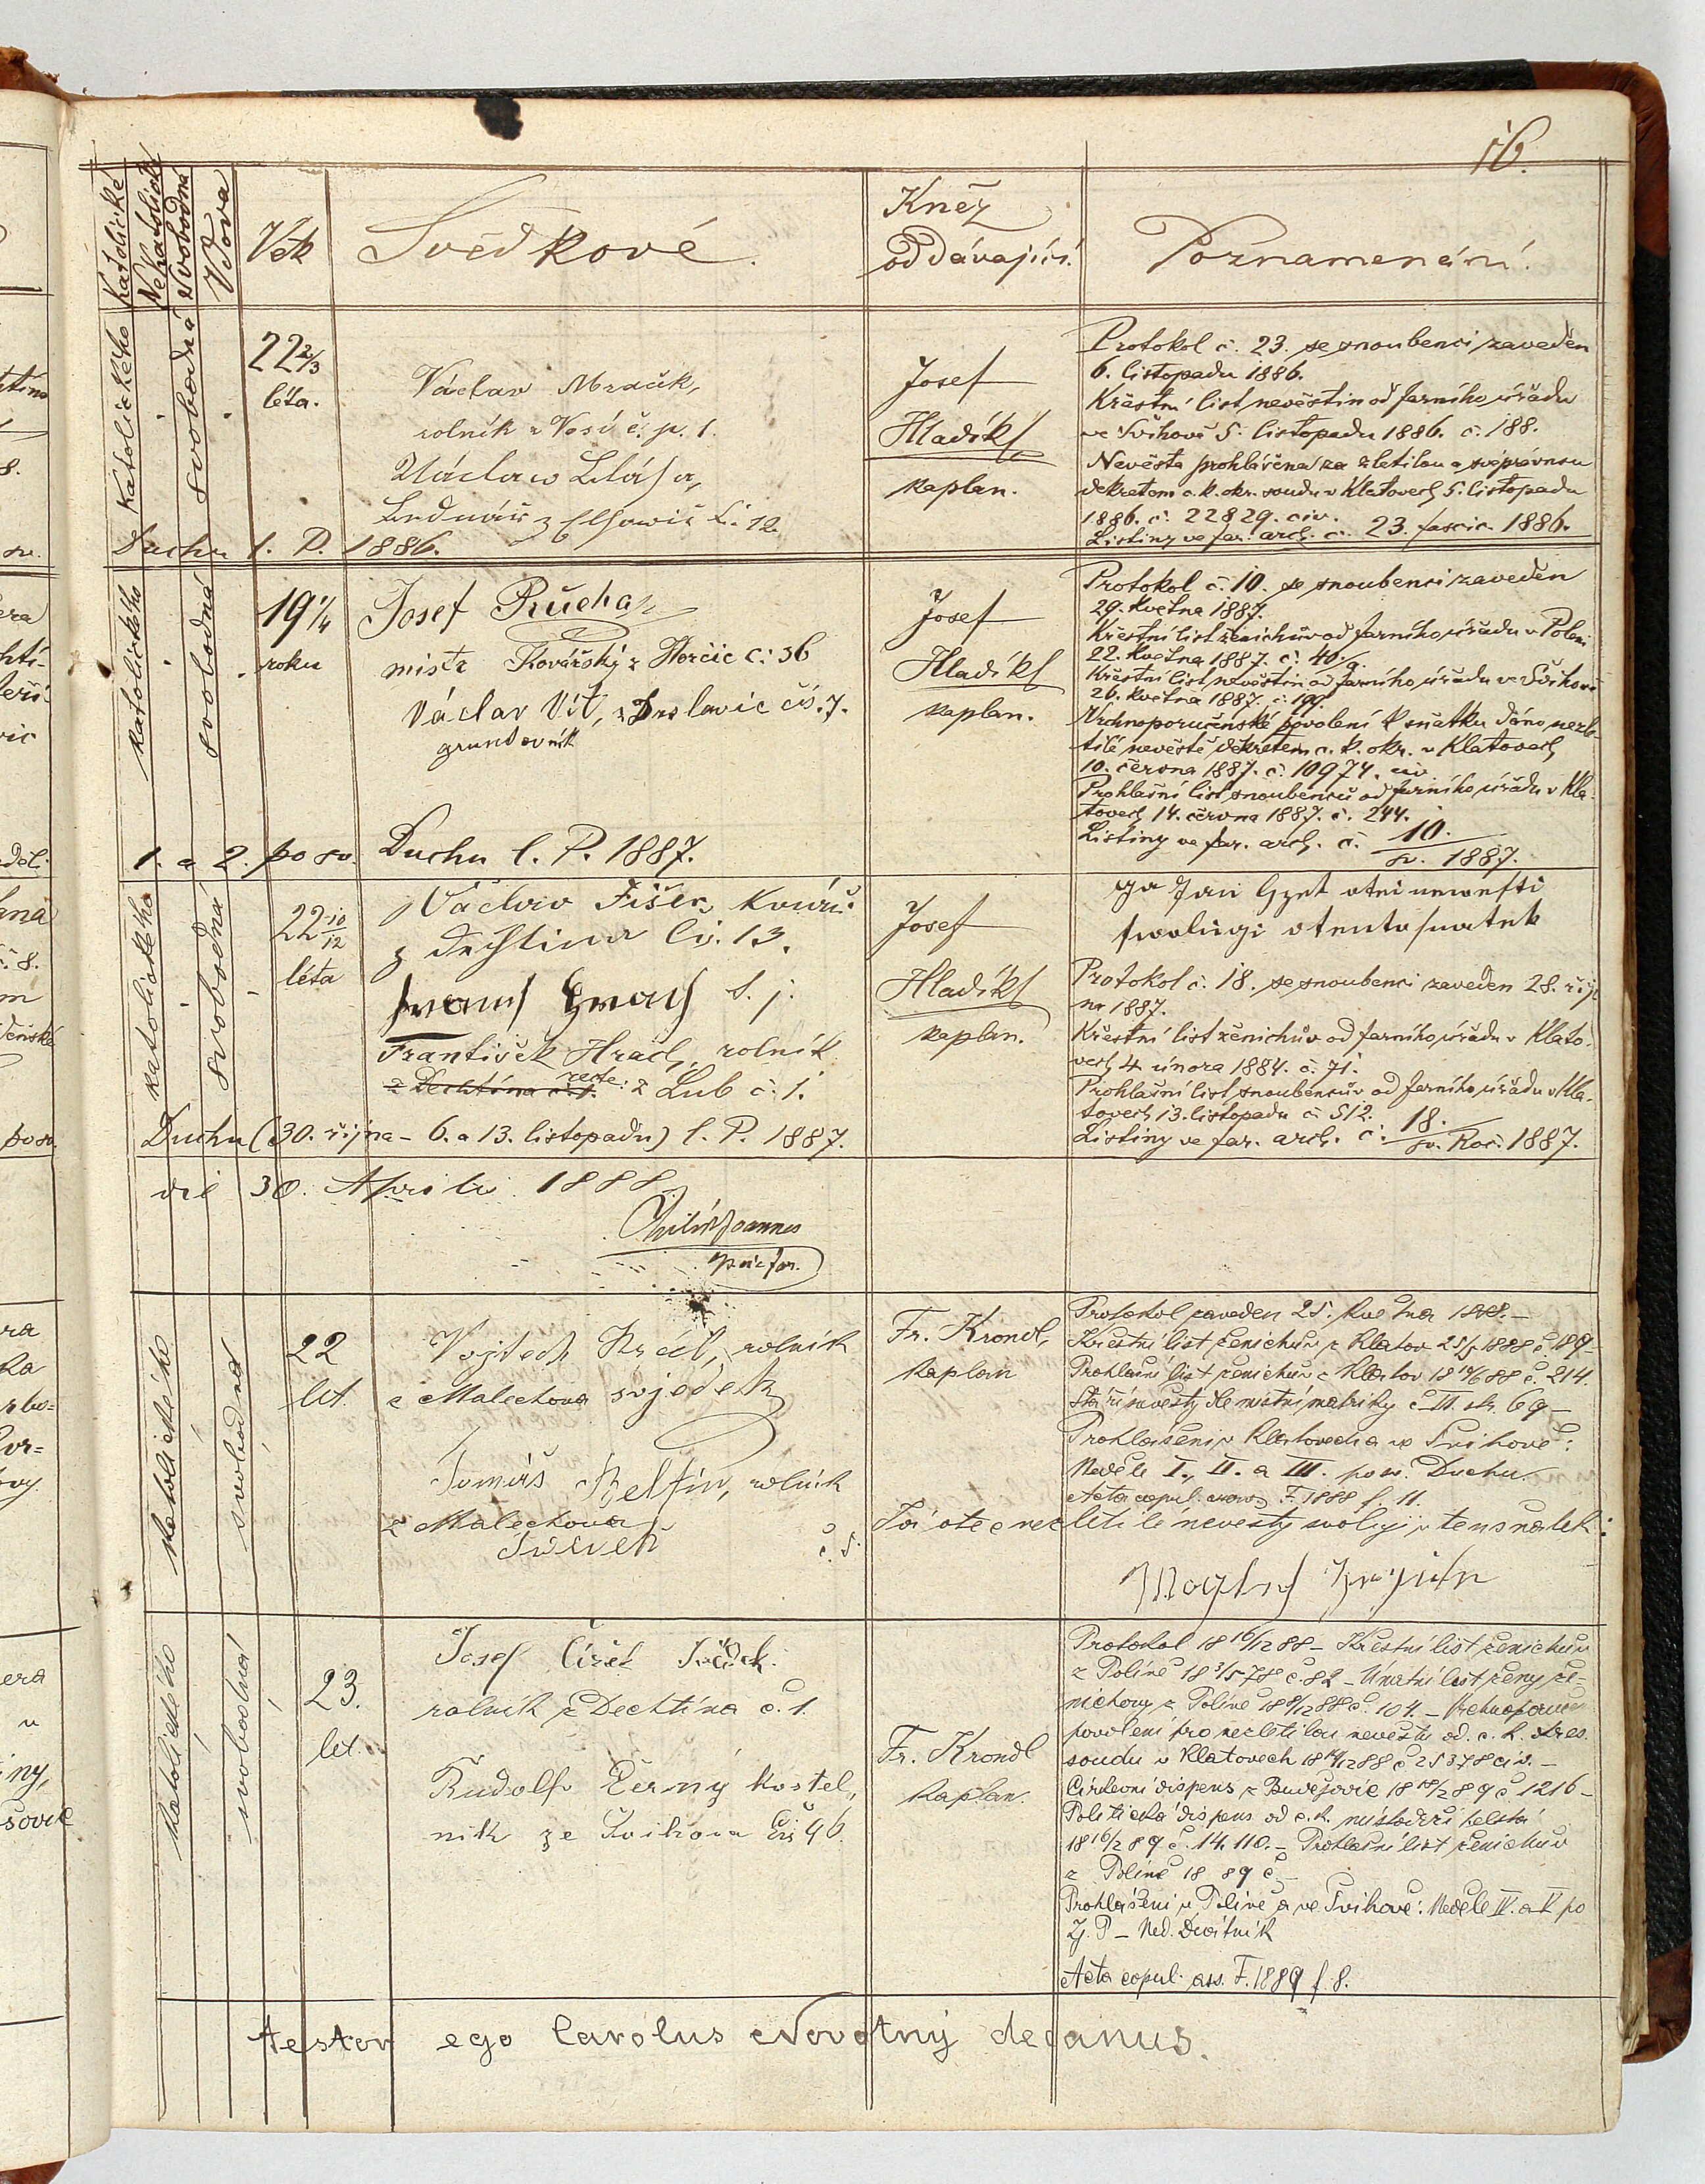 16.
Katolické
Nekatolické
Svobodná
Vdova
Věk
Svědkové.
Kněz
oddávající.
Poznamenání.
Katolického
svobodná
22 2/3
léta.
Václav Mraček,
rolník z Vosí č. p. 1.
Václaw
z č. 12.
Duchu l. P. 1886.
Josef
Hladík
kaplan.
Protokol č. 23. se snoubenci zaveden
6. listopadu 1886.
Křestní list nevěstin od farního úřadu
ve Švihově 5. listopadu 1886. č. 188.
Nevěsta prohlášena za zletilou a svéprávnou
dekretem c. k. okr. soudu v Klatovech 5. listopadu
1886. č. 22829. civ.
Listiny ve far. arch. č. 23. fascic. 1886.
katolického
svobodná
19 1/4
roku
Josef
mistr Kovářský z Horčic č: 36
Václav Vít, z Druslavic čís. 7.
gruntovník
1. a 2. po sv. Duchu l. P. 1887.
Josef
Hladík
kaplan.
Protokol č. 10. se snoubenci zaveden
29. května 1887.
Křestní list ženichův od farního úřadu v Poleni
22. května 1887. č. 40/g.
Křestní list nevěstin od farního úřadu ve Švihově
26. května 1887. č.
Vrchnoporučenské povolení k sňatku dáno nezle-
tilé nevěstě dekretem c. k. okr. v Klatovech
10. června 1887. č. 10974. civ.
Prohlašní list snoubenců od farního úřadu v Kla-
tovech 14. června 1887. č. 244.
Listiny ve far. arch. č. 10.
sv. 1887.
katolického
svobodná
22 10/12
léta
Václav Fišer, Kovář
z Dechtína čís. 13.
s. j.
František Hrach, rolník
z Dechtína č. 1. recte: z Lub č. 1.
Duchu (30. října – 6. a 13. listopadu) l. P. 1887.
Josef
Hladík
kaplan.
Ja Jan otec newesti
swolugi otento snatek
Protokol č. 18. se snoubenci zaveden 28. říj-
na 1887.
Křestní list ženichův od farního úřadu v Klato-
vech 4 února 1884. č. 71.
Prohlašní list snoubencův od farního úřadu v Kla-
tovech 13. listopadu č. 512.
Listiny ve far. arch. č: 18.
sv. Roč. 1887.
die 30. Aprilis 1888.
Joannes
Katolického
svobodná
22
let.
Vojtěch Král, rolník
z Malechova svjedek
Tomáš Beltín, rolník
z Malechova
Svědek č. 5.
Fr. Krondl,
kaplan
Protokol zaveden 25. května 1888. –
Křestní list ženichův z Klatov 25/5 1888 č. 189 –
Prohlašní list ženichův z Klatov 18 /6 88 č. 214.
Stáří nevěsty dle místní matriky č. III. str. 69 –
Prohlášeni v Klatovech a ve Švihově:
Neděle I., II. a III. po sv. Duchu.
Acta copul. F. 1888 f. 11.
Já otec nezletilé nevěsty svoluji v ten sňatek:
Katolického
svobodná
23.
let.
Josef Čížek Svědek.
rolník z Dechtína č. 1.
Rudolf Černý kostel-
ník ze Švihova Čís 96.
Fr. Krondl
kaplan.
Protokol 18 16/12 88 – Křestní list ženichův
z Polině 18 3/5 78 č. 82 – Úmrtní list ženy že-
nichovy z Polině 18 8/12 88 č. 104. –
povolení pro nezletilou nevěstu od. c. k. okres.
soudu v Klatovech 18 /12 88 č 25378 civ. –
Církevní dispens z Budějovic 18 /2 89 č. 1216 –
Politická dispens od c. k. místodržitelství
18 16/2 89 č. 14.110. – Prohlašní list ženichův
z Polině 18 89 č. –
Prohlášeni v Polině a ve Švihově: Neděle IV. a V po
Zj. P – Ned. Devítník
Acta copul. ass. F. 1889 f. 8.
testor ego Carolus Novotný decanus.